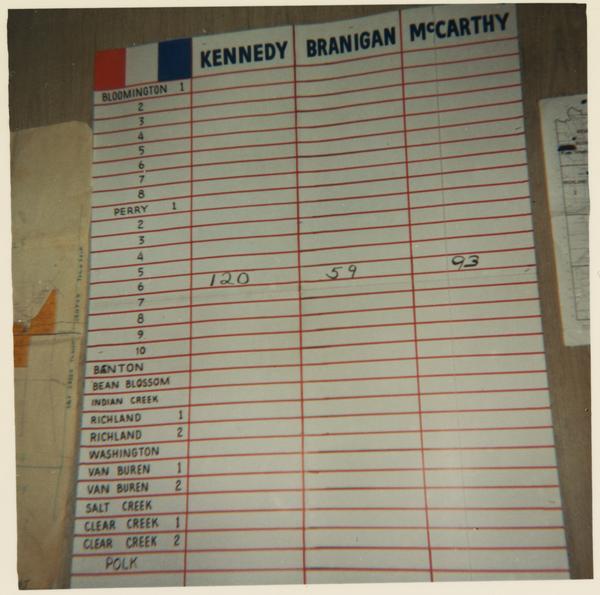 KENNEDY BRANIGAN McCARTHY
BLOOMINGTON 1
2
3
4
5
6
7
8
PERRY 1
2
3
4
5
6 120 59 93
7
8
9
10
BENTON
BEAN BLOSSOM
INDIAN CREEK
RICHLAND 1
RICHLAND 2
WASHINGTON
VAN BUREN 1
VAN BUREN 2
SALT CREEK
CLEAR CREEK 1
CLEAR CREEK 2
POLK